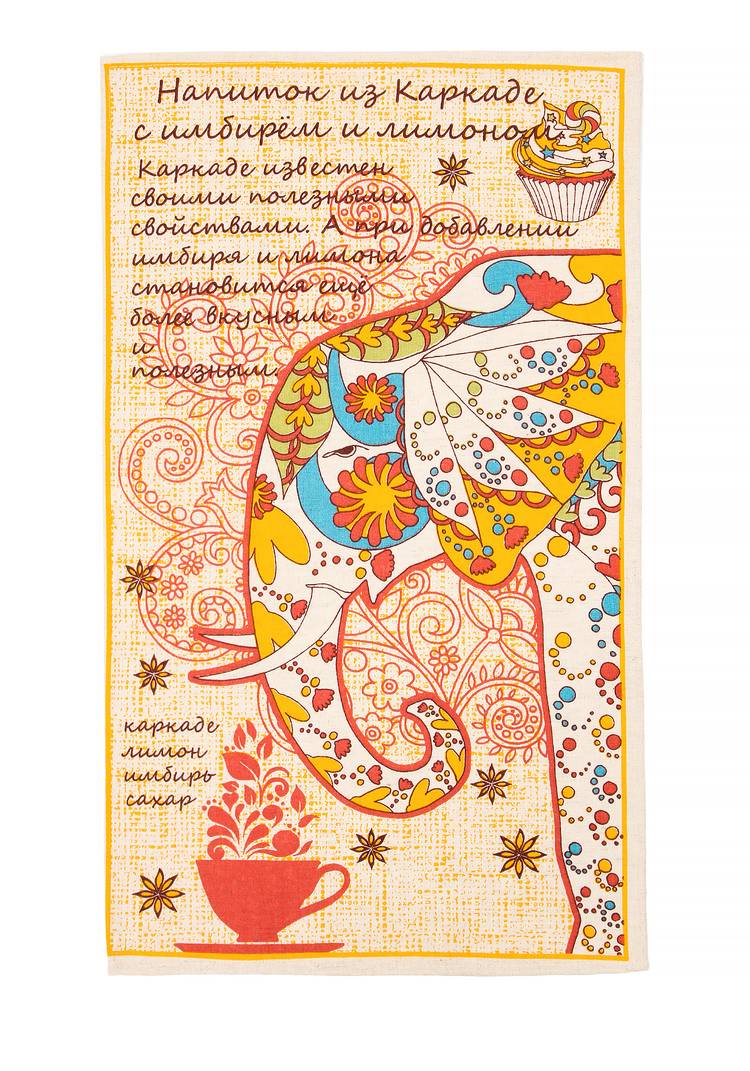 Напиток из Каркаде
с имбирём и лимоном
Каркаде известен
своими полезными
свойствами. А при добавлении
имбиря и лимона
становится ещё
более вкусным
и
полезным.
каркаде
лимон
имбирь
сахар